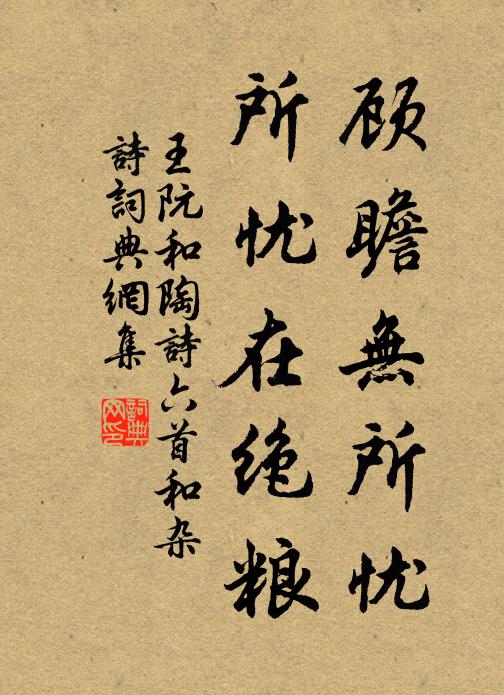 顾瞻無所忧
所忧在绝粮
王阮和陶詩六首和杂
詩詞典網集
詞典
网印